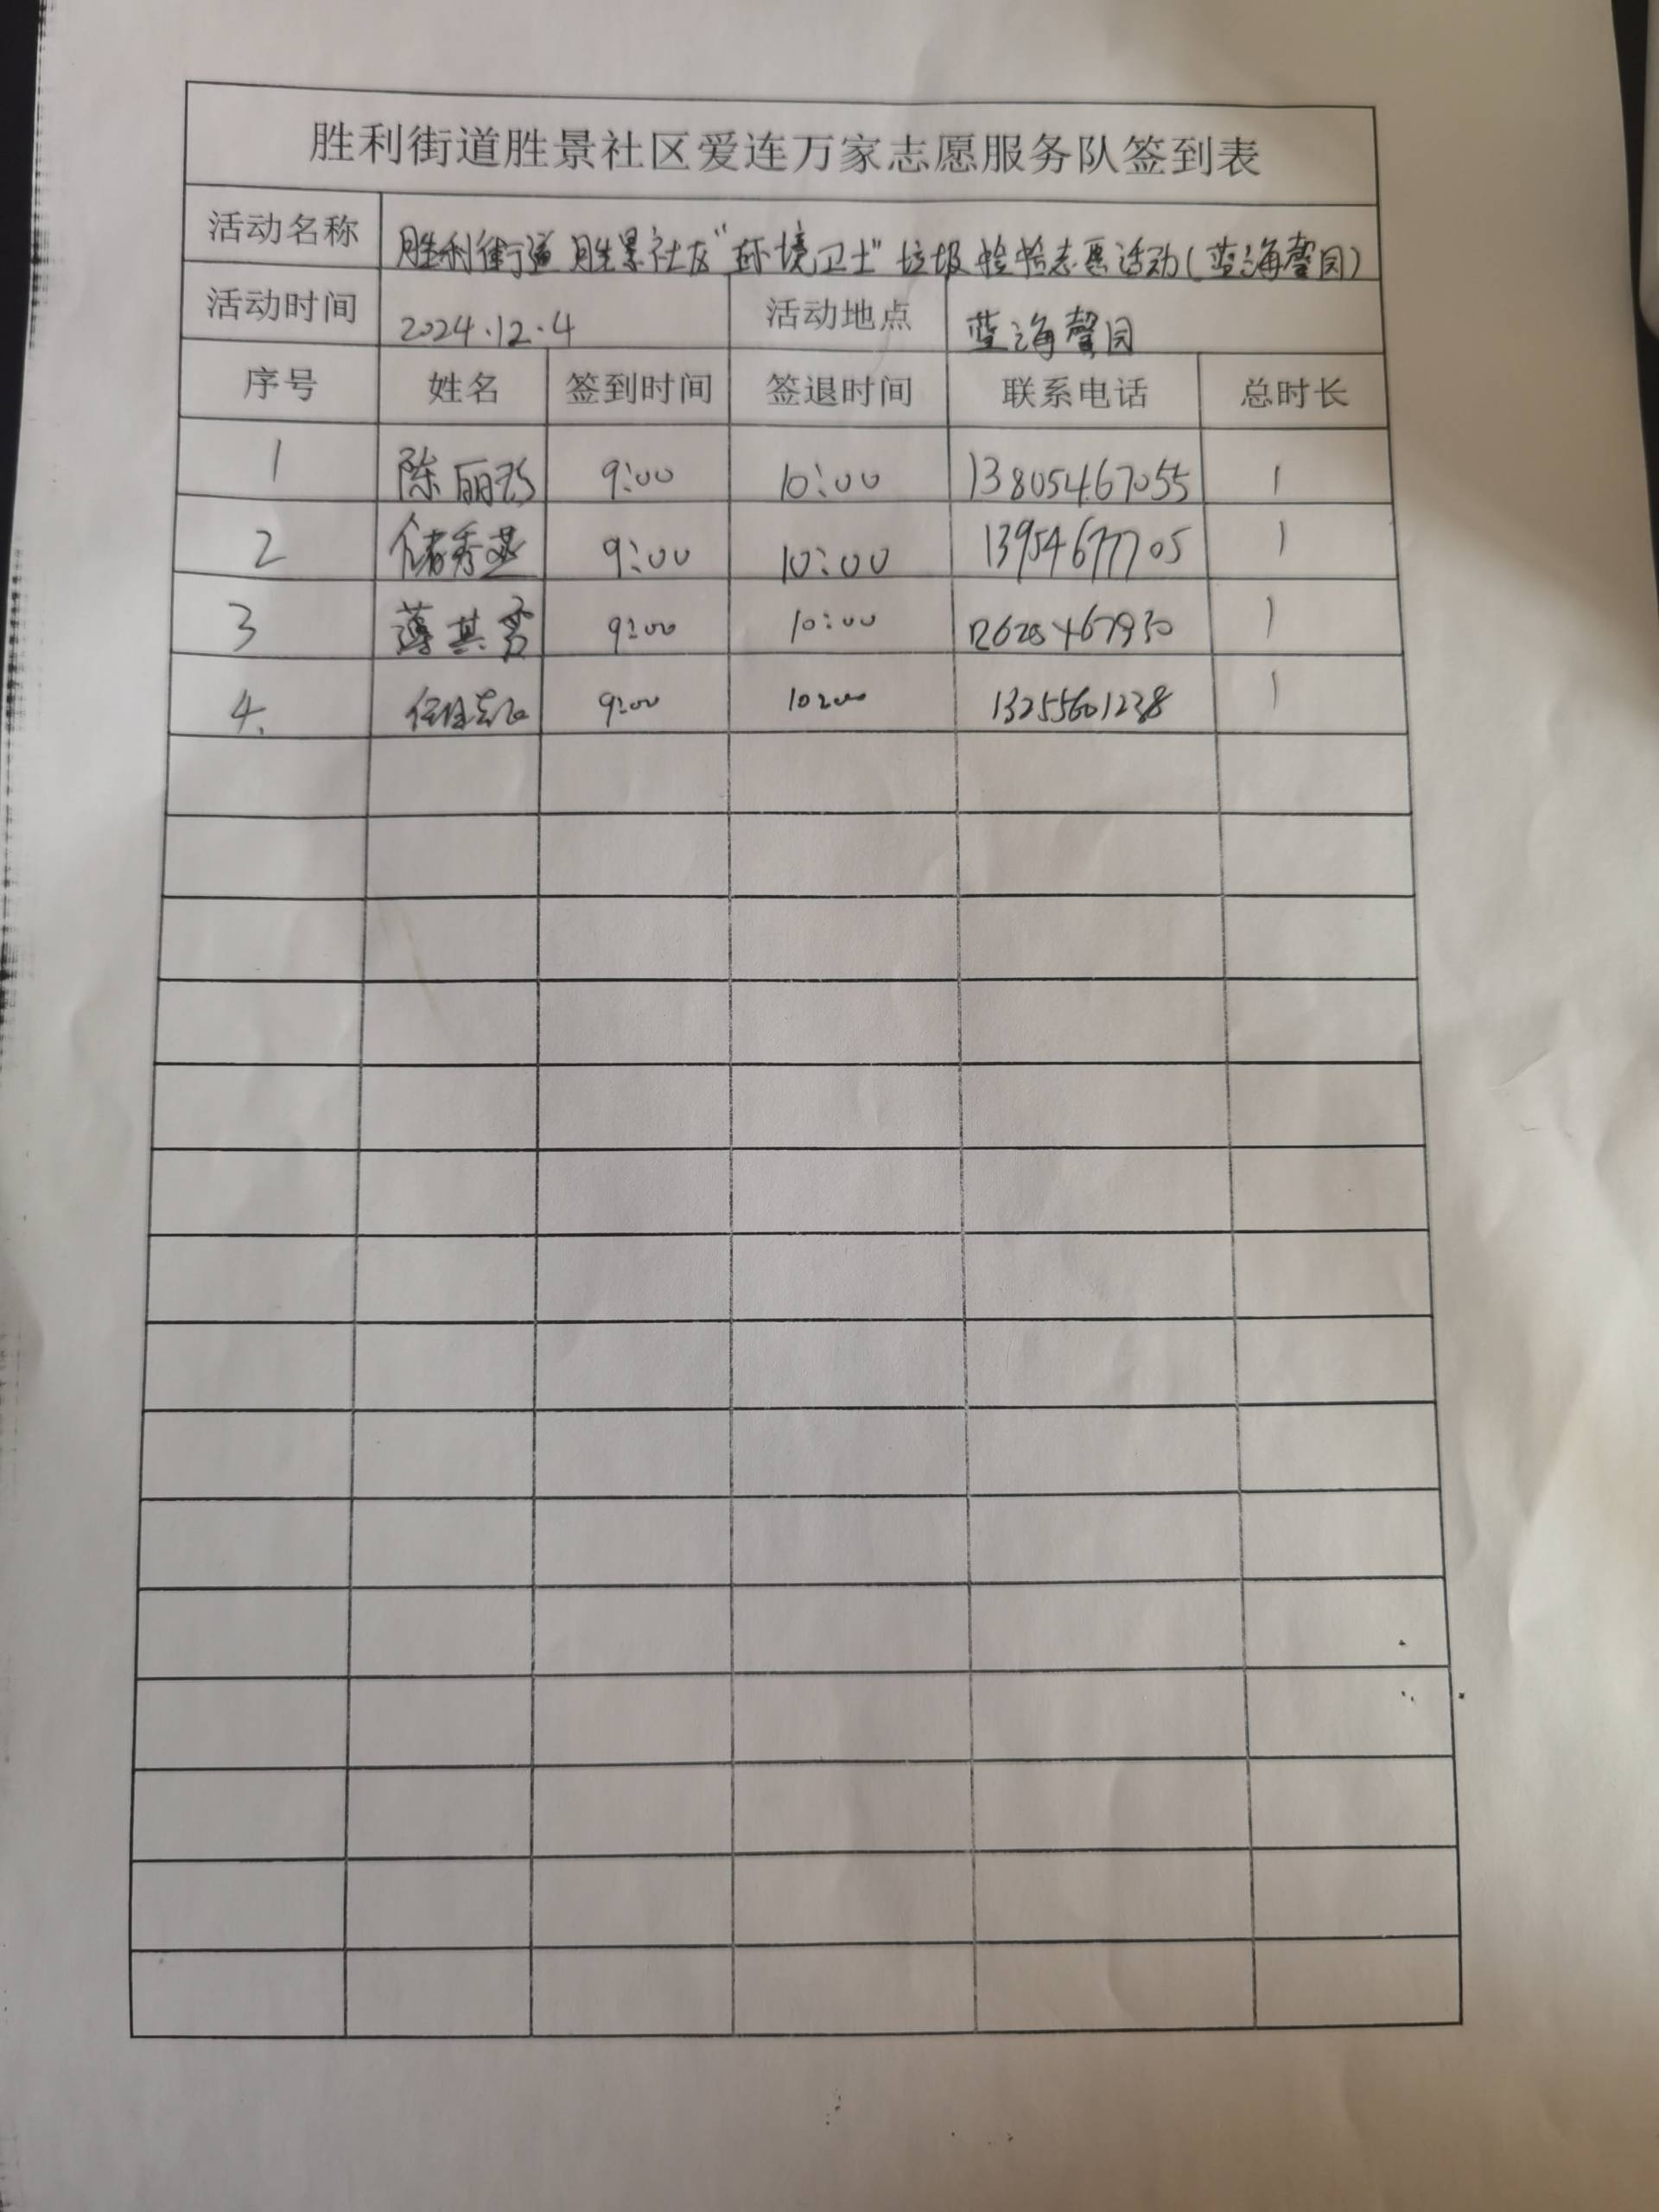 胜利街道胜景社区爱连万家志愿服务队签到表
活动名称 胜利街道胜景社区“环境卫士”垃圾捡拾志愿活动(蓝海馨园)
活动时间 2024.12.4 活动地点 蓝海馨园
序号 姓名 签到时间 签退时间 联系电话 总时长
1 陈丽 9:00 10:00 13805467055 1
2 储秀燕 9:00 10:00 13954677705 1
3 薄其秀 9:00 10:00 1
4. 9:00 10:00 13255601238 1